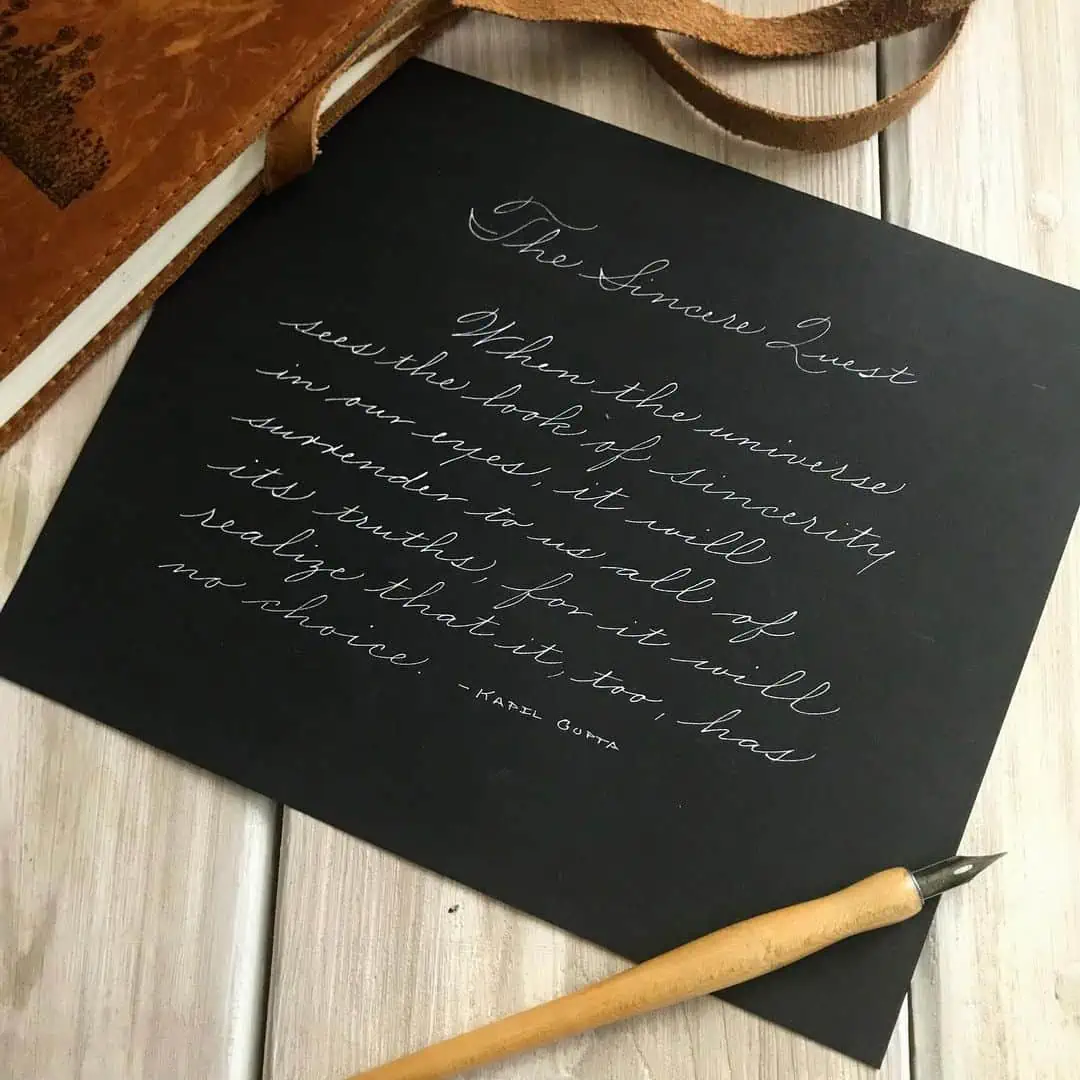 The Sincere Quest
When the universe
sees the look of sincerity
in our eyes, it will
surrender to us all of
its truths, for it will
realize that it, too, has
no choice.
- KAPIL GUPTA